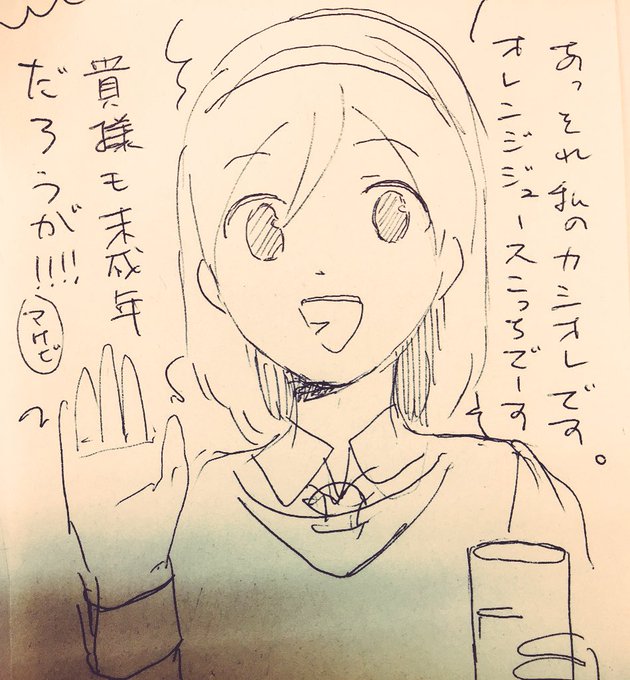 あっそれ私のカシオレです。
オレンジジュースこっちでーす
貴様も未成年
だろうが!!!!
マケビ